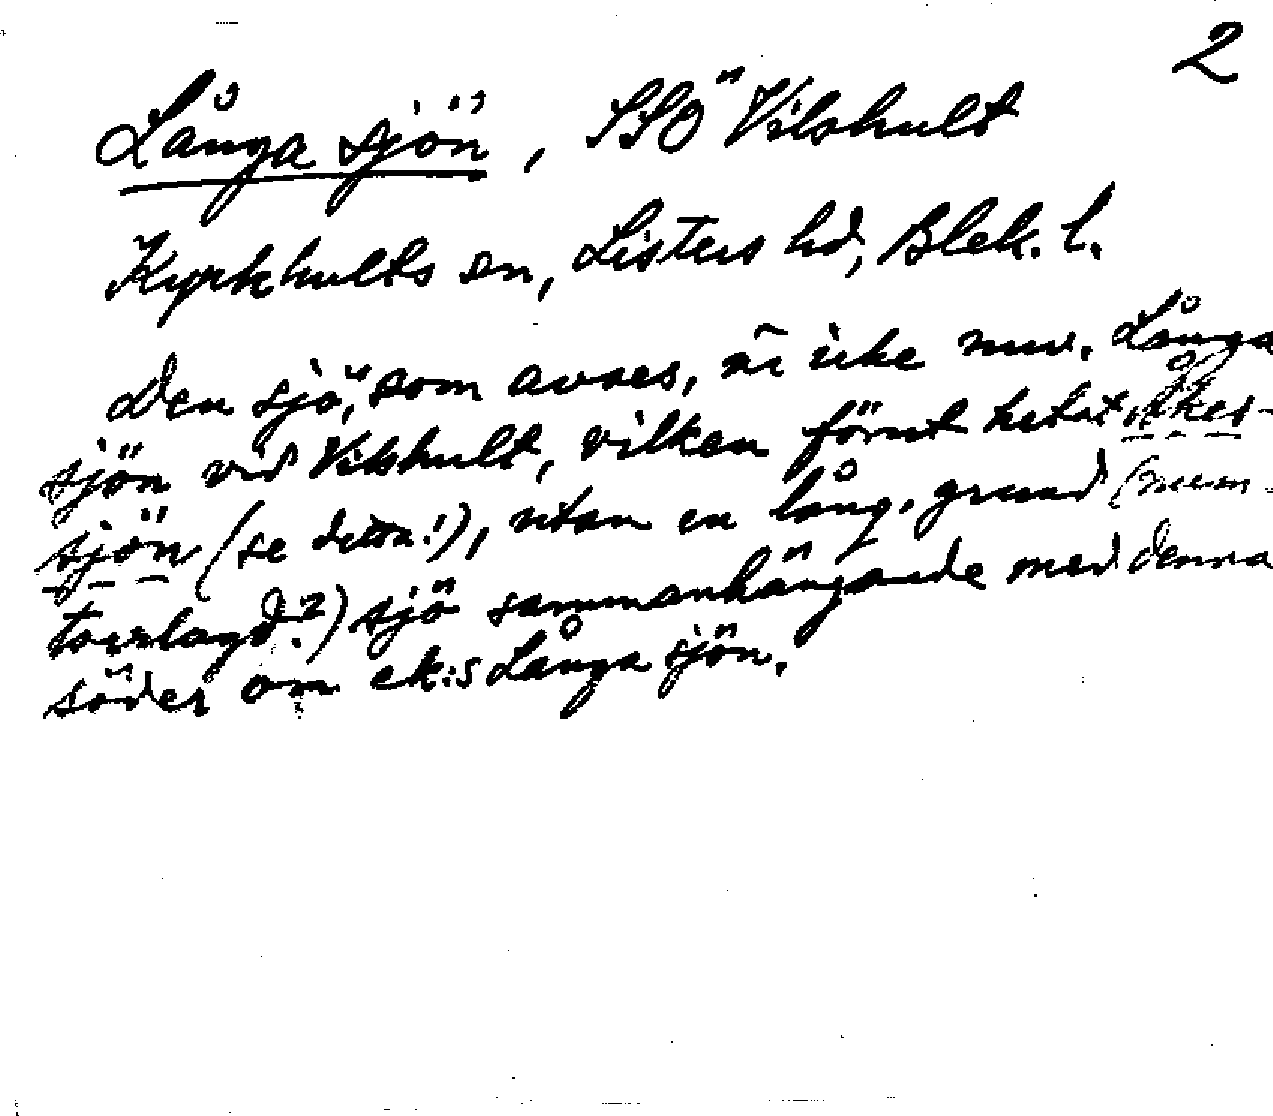 2
Långa sjön, SSÖ Vilshult
Kyrkhults sn, Listers hd, Blek. l.
Den sjö, som avses, är icke nuv. Långa
sjön vid Vilshult, vilken förut hetat Åkes-
sjön (se detta!), utan en lång, grund (num-
torrlagd?) sjö sammanhängande med denna
söder om ek:s Långa sjön.